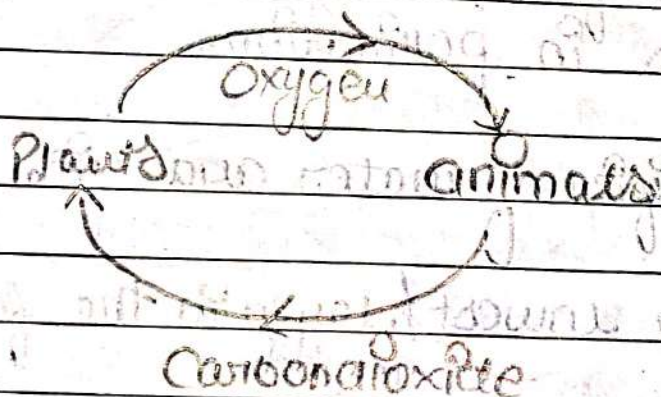 Oxygen
Plants animals
Carbondioxide